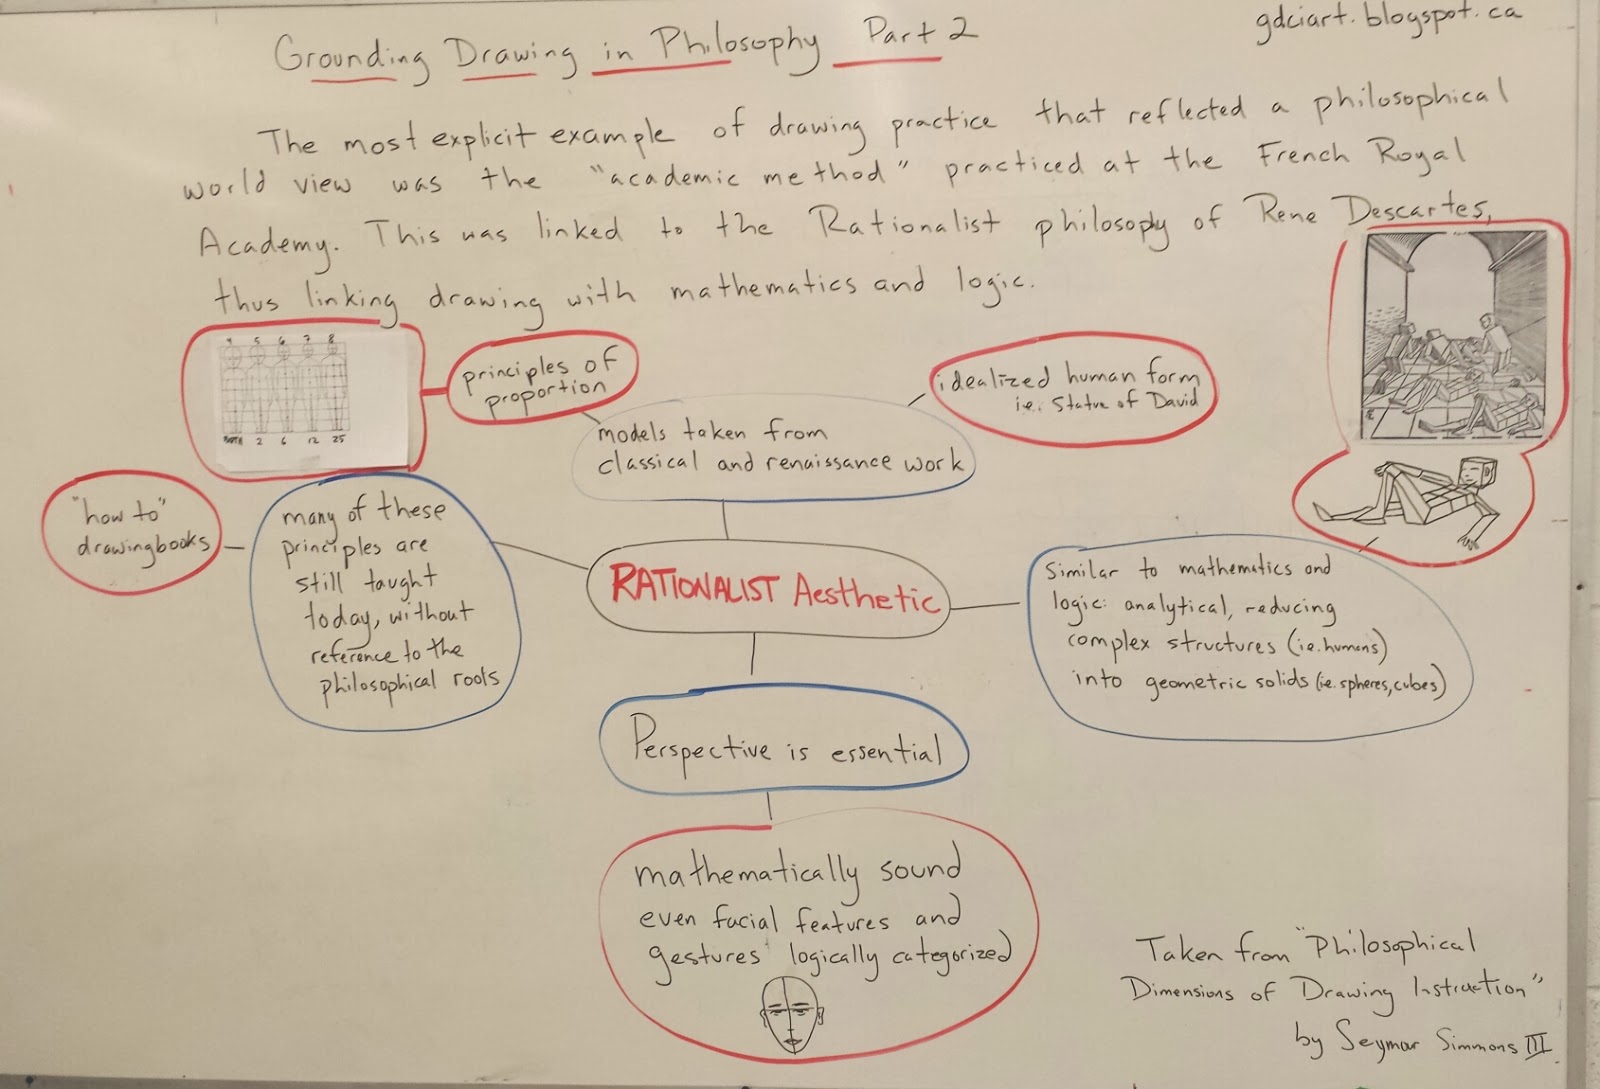 Grounding Drawing in Philosophy Part 2
gdciart.blogspot.ca
The most explicit example of drawing practice that reflected a philosophical
world view was the "academic method" practiced at the French Royal
Academy. This was linked to the Rationalist philosopy of Rene Descartes,
thus linking drawing with mathematics and logic.
4 5 6 7 8
BIRTH 2 6 12 25
principles of
proportion
idealized human form
i.e. Statue of David
models taken from
classical and renaissance work
"how to"
drawingbooks
many of these
principles are
still taught
today, without
reference to the
philosophical roots
RATIONALIST Aesthetic
Similar to mathematics and
logic: analytical, reducing
complex structures (i.e. humans)
into geometric solids (i.e. spheres, cubes)
Perspective is essential
mathematically sound
even facial features and
gestures logically categorized
Taken from "Philosophical
Dimensions of Drawing Instruction"
by Seymar Simmons III